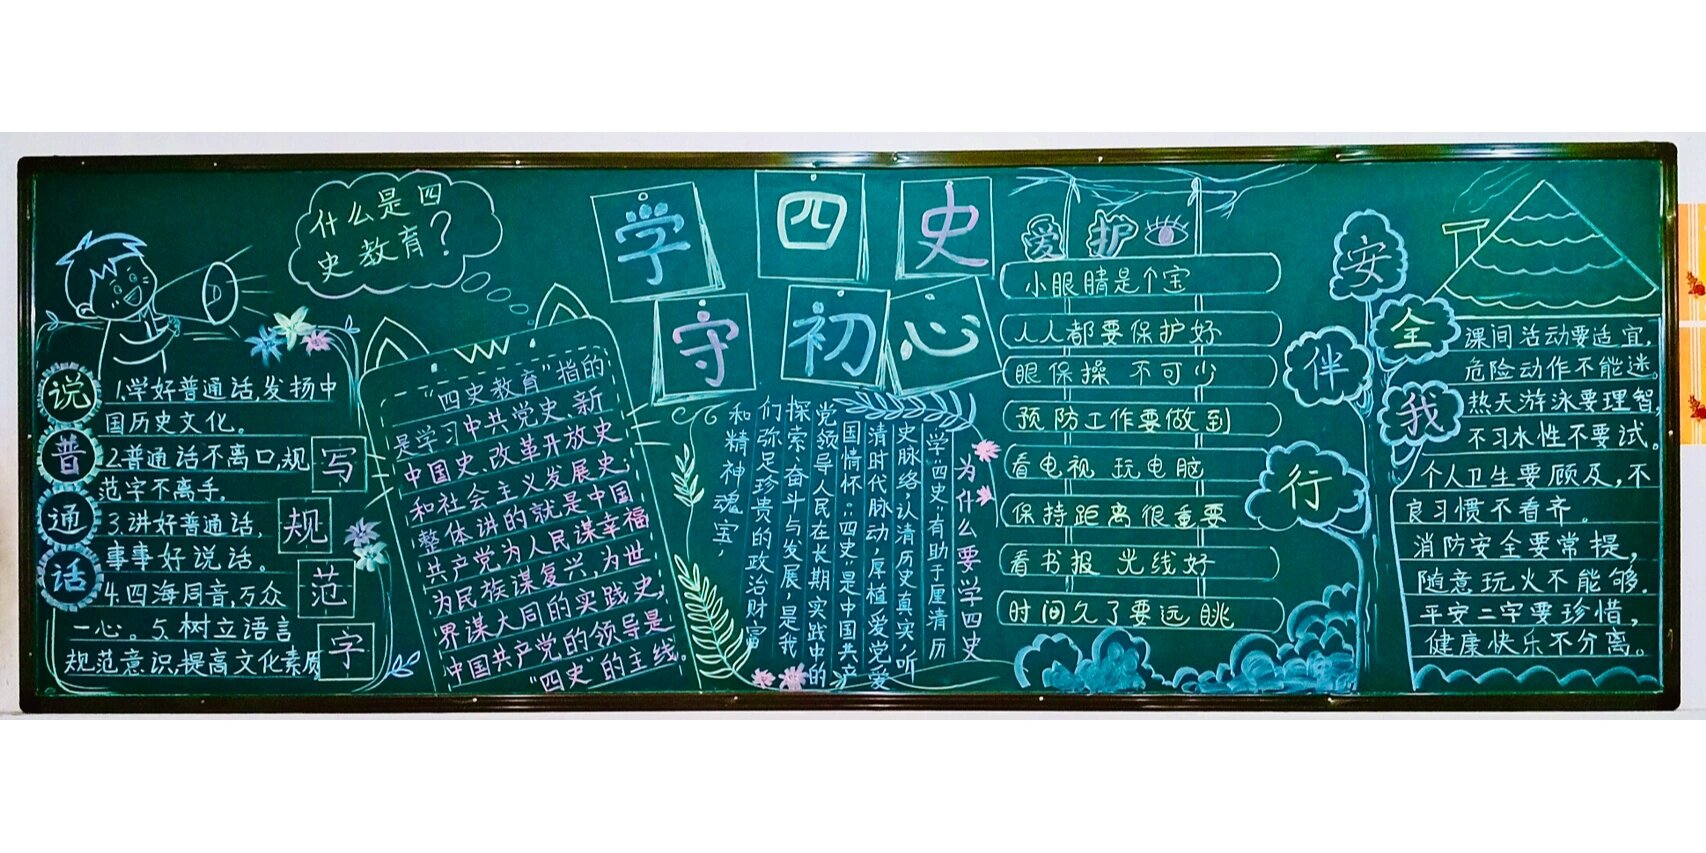 说普通话
1.学好普通话,发扬中
国历史文化。
2.普通话不离口,规
范字不离手.
3.讲好普通话,
事事好说话。
4.四海同音,万众
一心。5.树立语言
规范意识,提高文化素质
写规范字
什么是四
史教育?
"四史教育"指的
是学习中共党史、新
中国史、改革开放史
和社会主义发展史,
整体讲的就是中国
共产党为人民谋幸福
为民族谋复兴,为世
界谋大同的实践史,
中国共产党的领导是
"四史"的主线。
学四史
守初心
为什么要学四史
学"四史"有助于厘清历
史脉络,认清历史真实,听
清时代脉动,厚植爱党爱
国情怀::四史"是中国共产
党领导人民在长期实践中的
探索、奋斗与发展,是我
们弥足珍贵的政治财富
和精神魂宝,
爱护
小眼睛是个宝
人人都要保护好
眼保操 不可少
预防工作要做到
看电视 玩电脑
保持距离很重要
看书报 光线好
时间久了要远眺
安全伴我行
课间活动要适宜,
危险动作不能迷。
热天游泳要理智,
不习水性不要试。
个人卫生要顾及,不
良习惯不看齐。
消防安全要常提,
随意玩火不能够.
平安二字要珍惜,
健康快乐不分离。